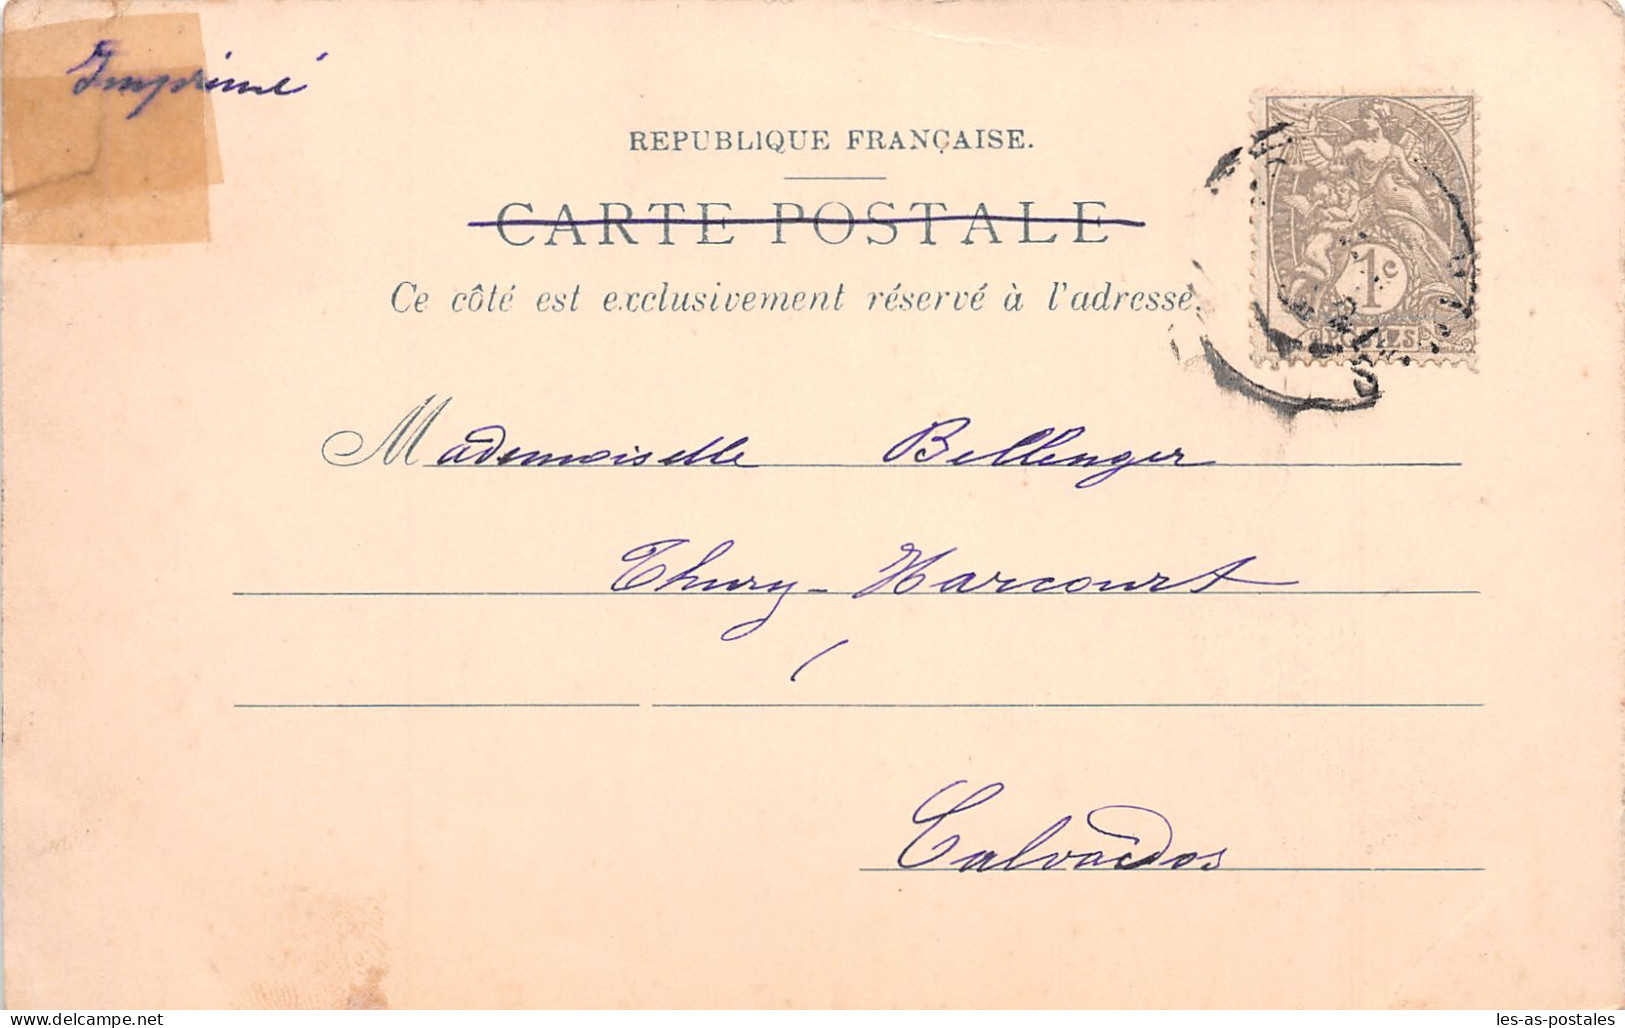 Imprimé
REPUBLIQUE FRANÇAISE.
CARTE POSTALE
Ce côté est exclusivement réservé à l'adresse.
1c
POSTES
Mademoiselle Bellenger
Thury-Harcourt
Calvados
delcampe.net
les-as-postales